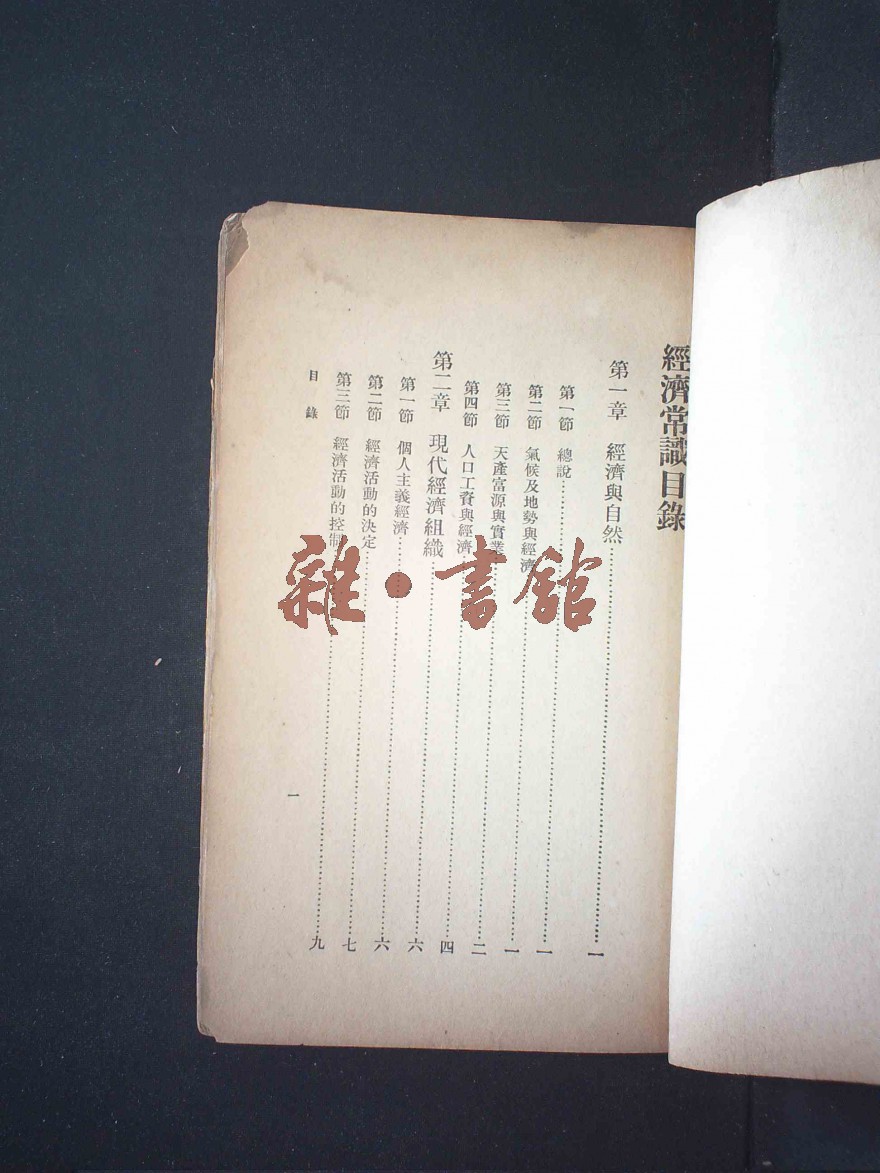 經濟常識目錄
第一章 經濟與自然……一
第一節 總說……一
第二節 氣候及地勢與經濟……一
第三節 天產富源與實業……二
第四節 人口工資與經濟……四
第二章 現代經濟組織……六
第一節 個人主義經濟……六
第二節 經濟活動的決定……七
第三節 經濟活動的控制……九
目錄
一
雜·書館